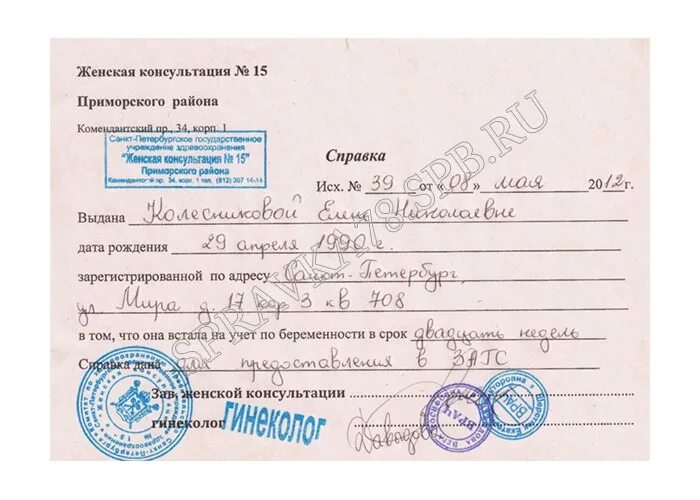 Женская консультация № 15
Приморского района
Комендантский пр., 34, корп. 1
Санкт-Петербургское государственное
учреждение здравоохранения
"Женская консультация № 15"
Приморского района
Комендантский пр. 34, корп. 1 тел. (812) 307 14-14
Справка
Исх. № 39 от «08» мая 2012г.
Выдана Колесниковой Елене Николаевне
дата рождения 29 апреля 1990 г.
зарегистрированной по адресу Санкт-Петербург,
ул. Мира д. 17 кор 3 кв 708
в том, что она встала на учет по беременности в срок двадцать недель
Справка дана для предоставления в ЗАГС
Зав. женской консультации
гинеколог ГИНЕКОЛОГ Давыдова
ВРАЧ
ВРАЧ
SPRAVKA78SPB.RU